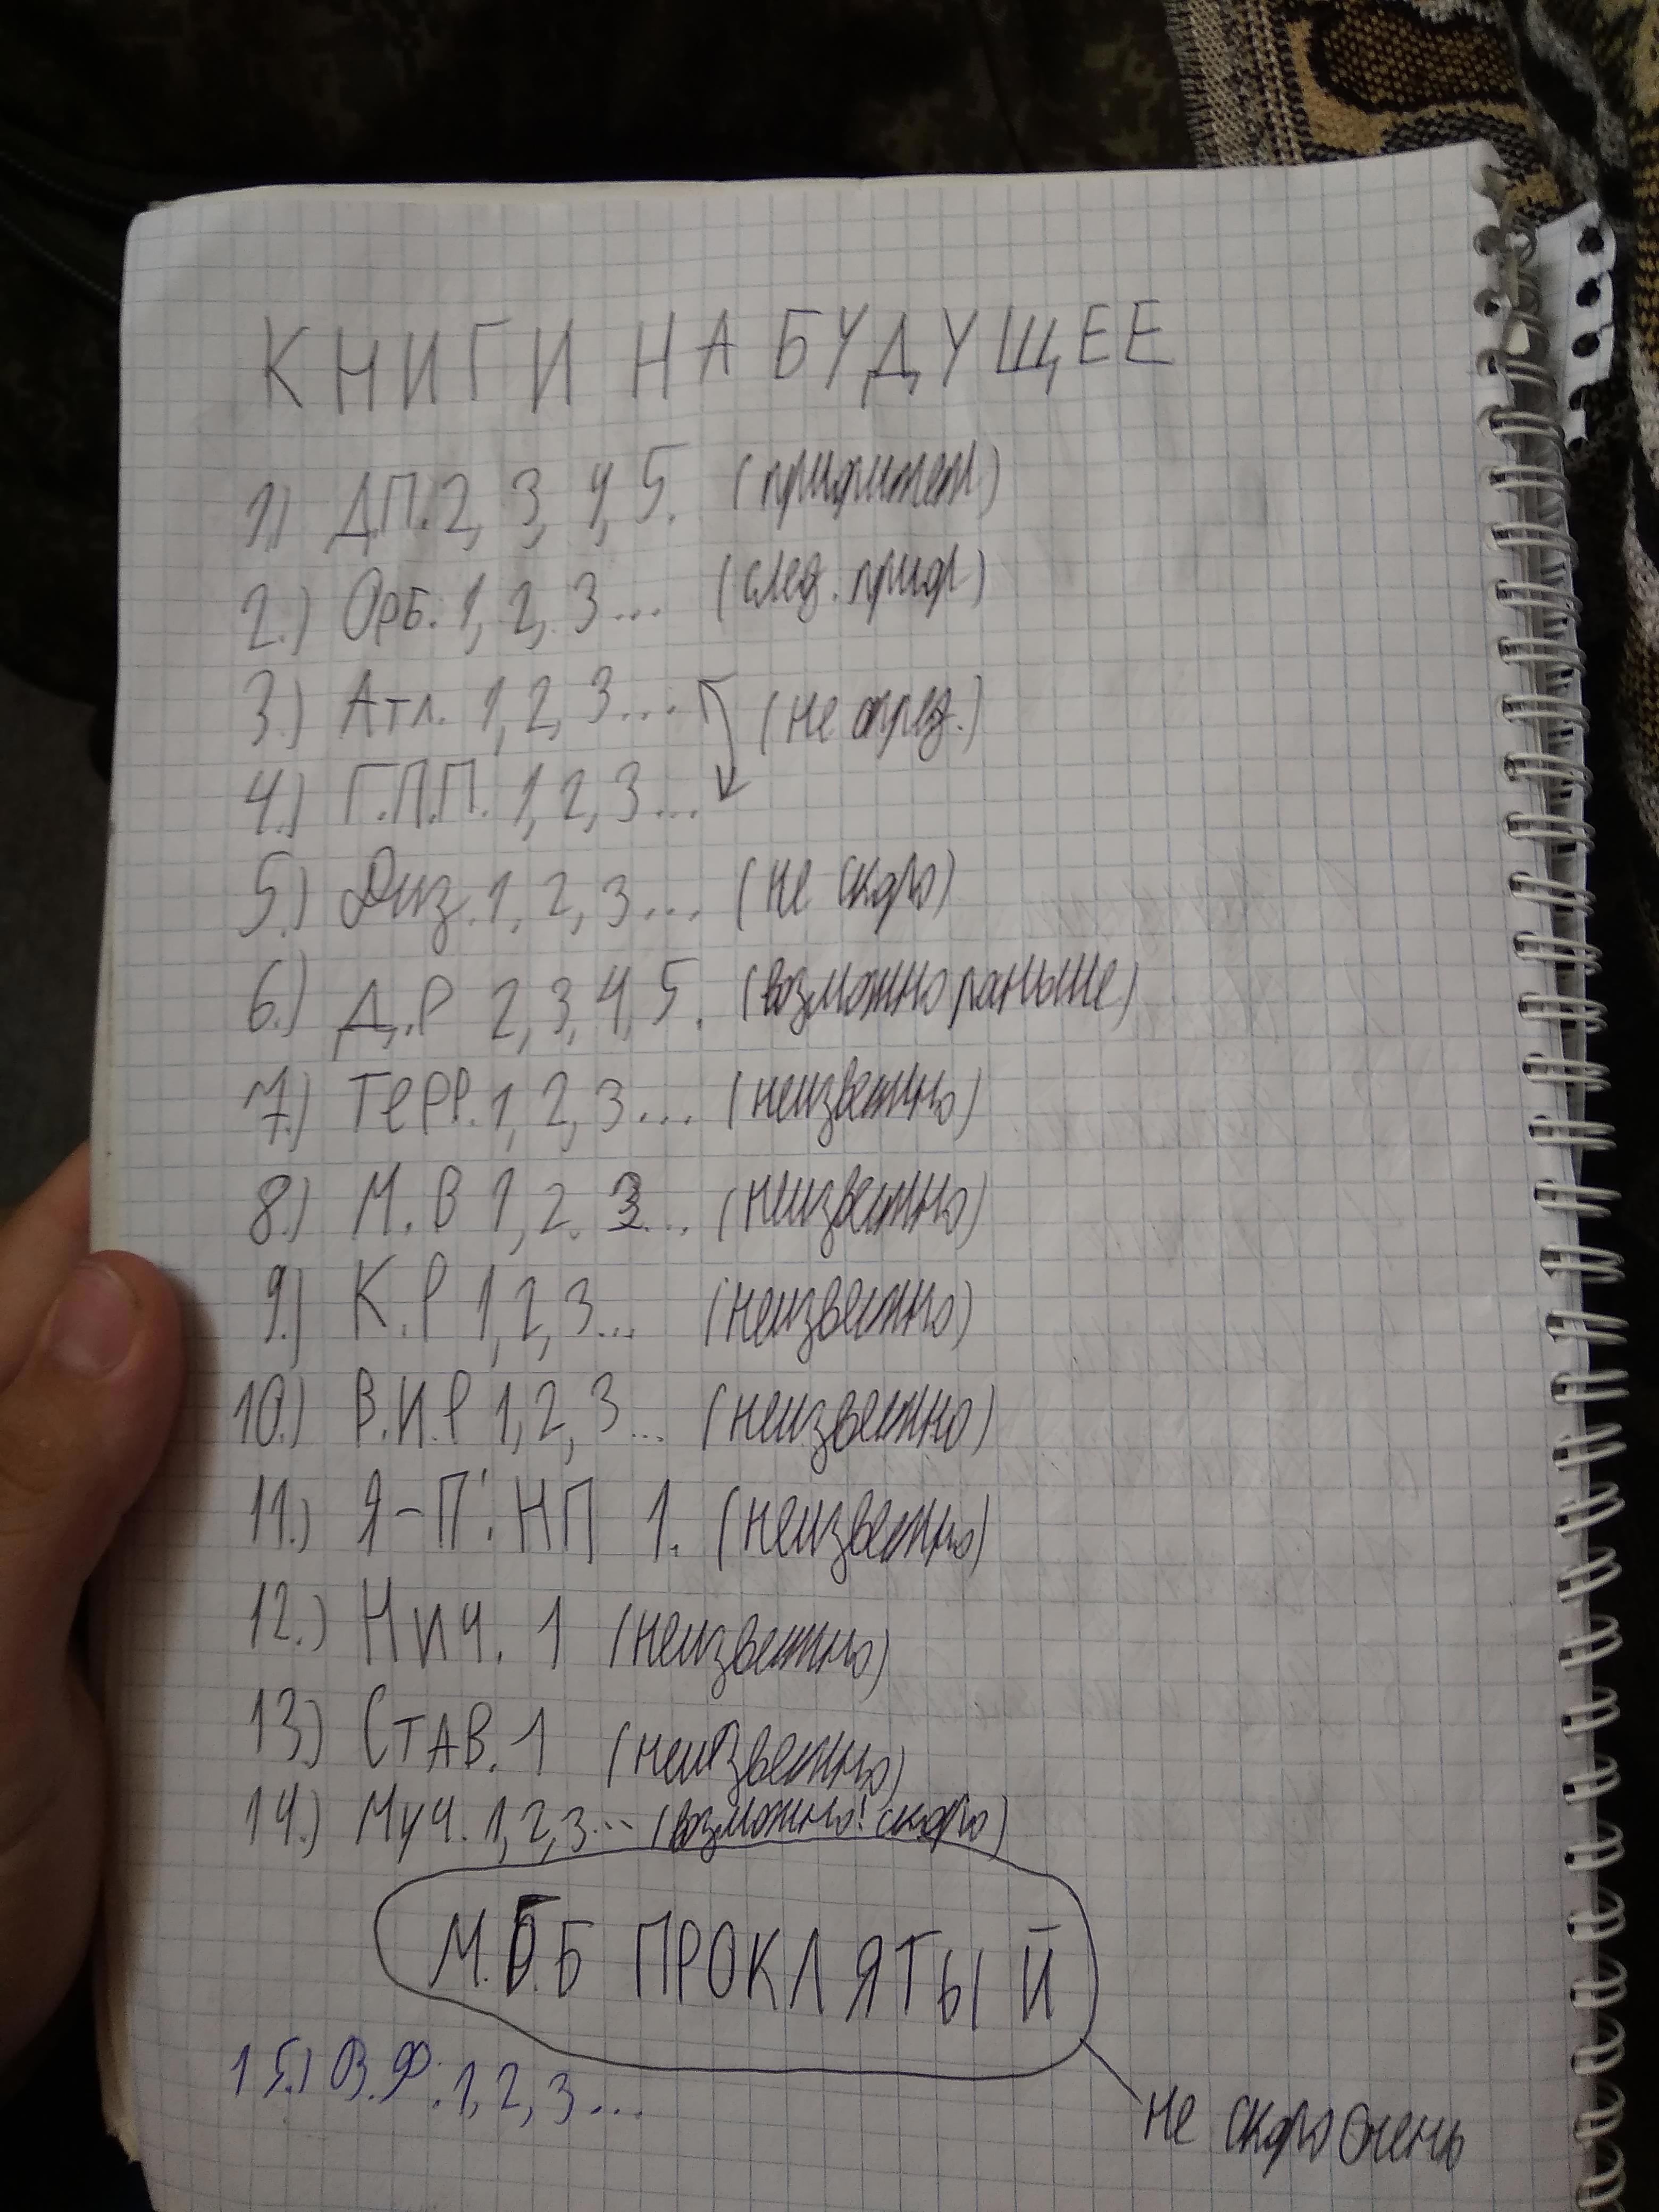 КНИГИ НА БУДУЩЕЕ
1) Д.П. 2, 3, 4, 5. (приоритет)
2.) Орб. 1, 2, 3... (след. приор)
3.) Атл. 1, 2, 3... (не опред.)
4.) Г.Л.П. 1, 2, 3...
5.) Диз. 1, 2, 3... (не скоро)
6.) Д.Р 2, 3, 4, 5. (возможно раньше)
7.) Терр. 1, 2, 3... (неизвестно)
8.) М.В 1, 2. 3... (неизвестно)
9.) К.Р 1, 2, 3... (неизвестно)
10.) В.И.Р 1, 2, 3... (неизвестно)
11.) Я-П'. НП 1. (неизвестно)
12.) Нич. 1 (неизвестно)
13) Став. 1 (неизвестно)
14.) Муч. 1, 2, 3... (возможно! скоро)
М.Б.Б ПРОКЛЯТЫЙ
15.) В.Ф. 1, 2, 3...
не скоро очень